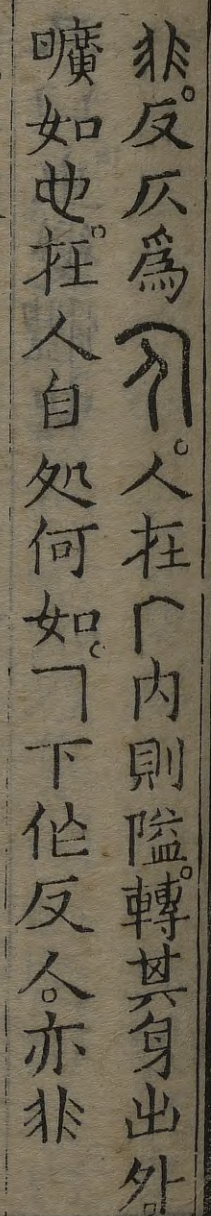 非。反仄爲。人在厂内則隘。轉其身出外。
曠如也。在人自処何如。㇆下作反人。亦非